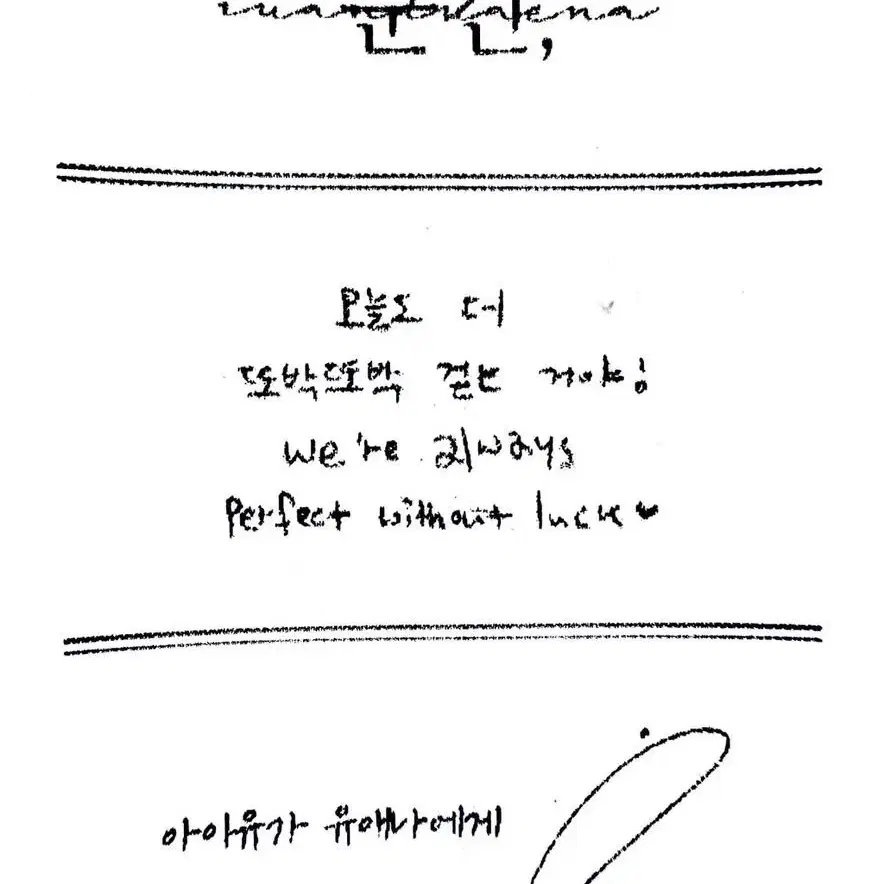 오늘도 더
또박또박 걷는 거야!
we're always
Perfect without luck ♥
아이유가 유애나에게